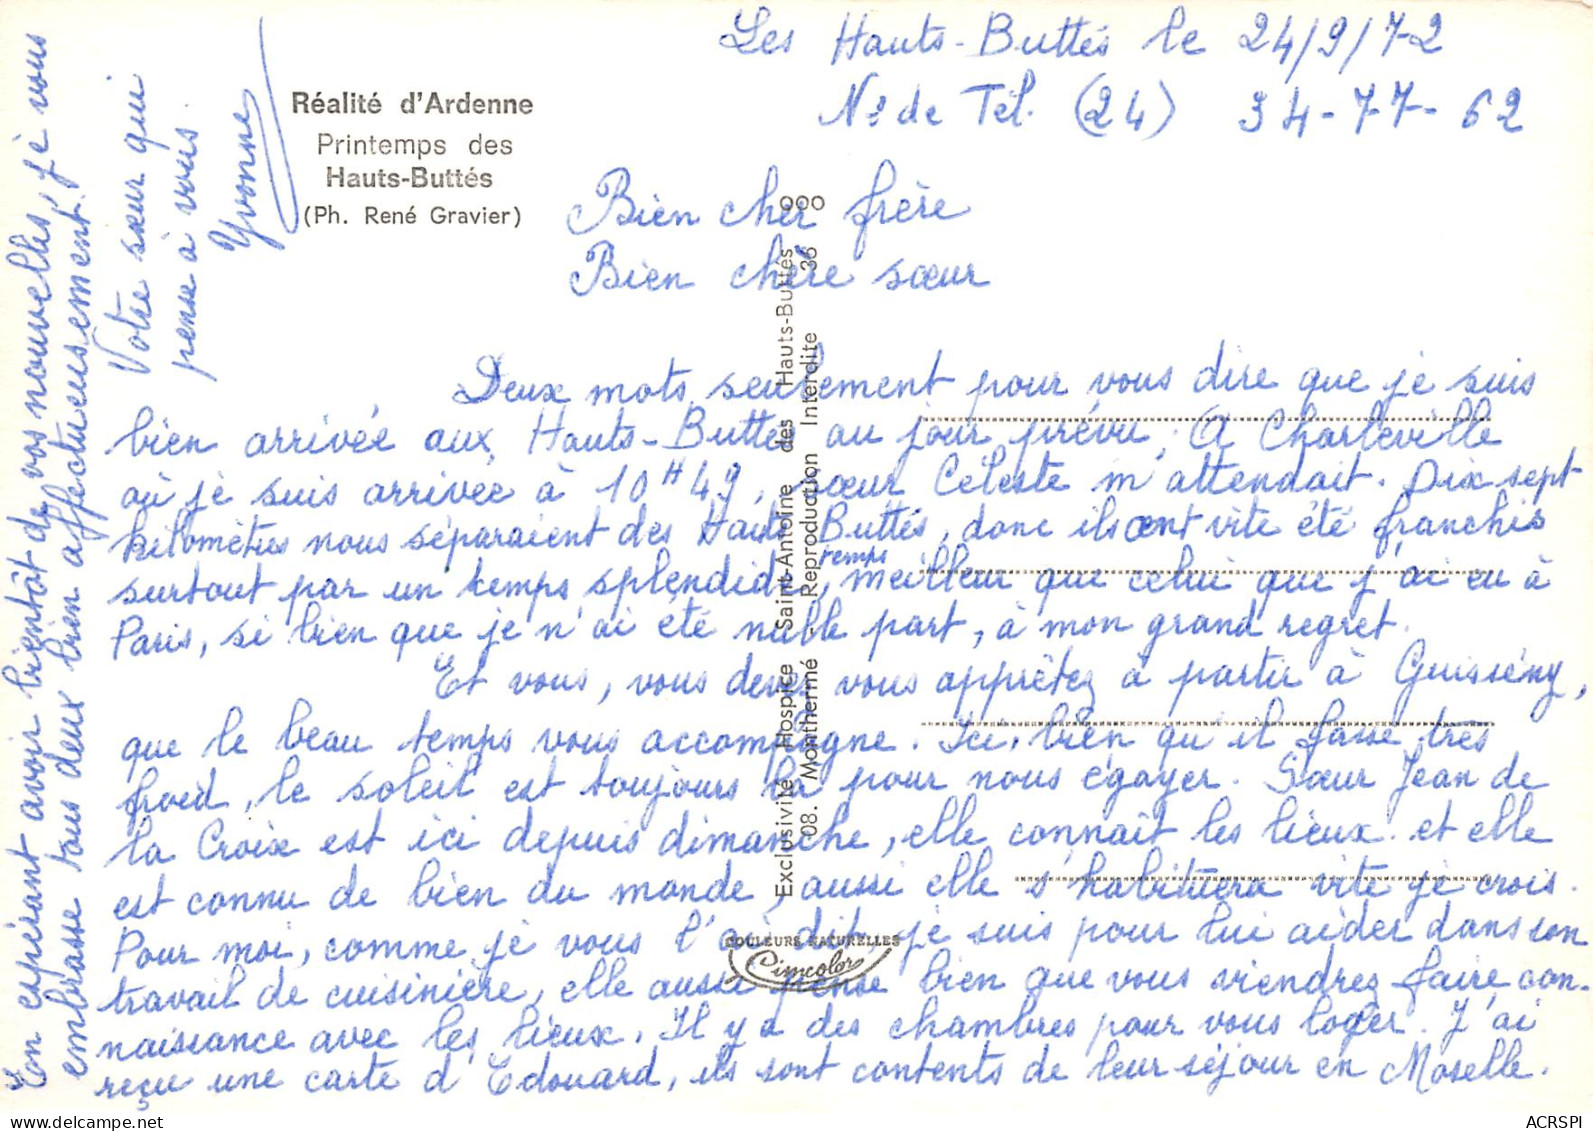 Les Hauts-Buttés le 24/9/72
N: de Tél. (24) 34-77-62
Réalité d'Ardenne
Printemps des
Hauts-Buttés
(Ph. René Gravier)
Bien cher frère
Bien chère sœur
Deux mots seulement pour vous dire que je suis
bien arrivée aux Hauts-Buttés au jour prévu, A Charleville
où je suis arrivée à 10H49, sœur Céleste m'attendait. Dix sept
kilomètres nous séparaient des Hauts Buttés, donc ils ont vite été franchis
surtout par un temps splendide, meilleur temps que celui que j'ai eu à
Paris, si bien que je n'ai été nulle part, à mon grand regret.
Et vous, vous devez vous apprêtez à partir à Guissény,
que le beau temps vous accompagne. Ici, bien qu'il fasse très
froid, le soleil est toujours là pour nous égayer. Sœur Jean de
la Croix est ici depuis dimanche, elle connaît les lieux et elle
est connu de bien du monde, aussi elle s'habituera vite je crois.
Pour moi, comme je vous l'ai dit, je suis pour lui aider dans son
travail de cuisinière, elle aussi pense bien que vous viendrez faire con-
naissance avec les lieux. Il y a des chambres pour vous loger. J'ai
reçu une carte d'Edouard, ils sont contents de leur séjour en Moselle.
En espérant avoir bientôt de vos nouvelles, je vous
embrasse tous deux bien affectueusement.
Votre sœur qui
pense à vous.
Yvonne
Exclusivité Hospice Saint-Antoine des Hauts-Buttés
08. Monthermé - Reproduction Interdite 36
COULEURS NATURELLES
Cimcolor
ACRSPI